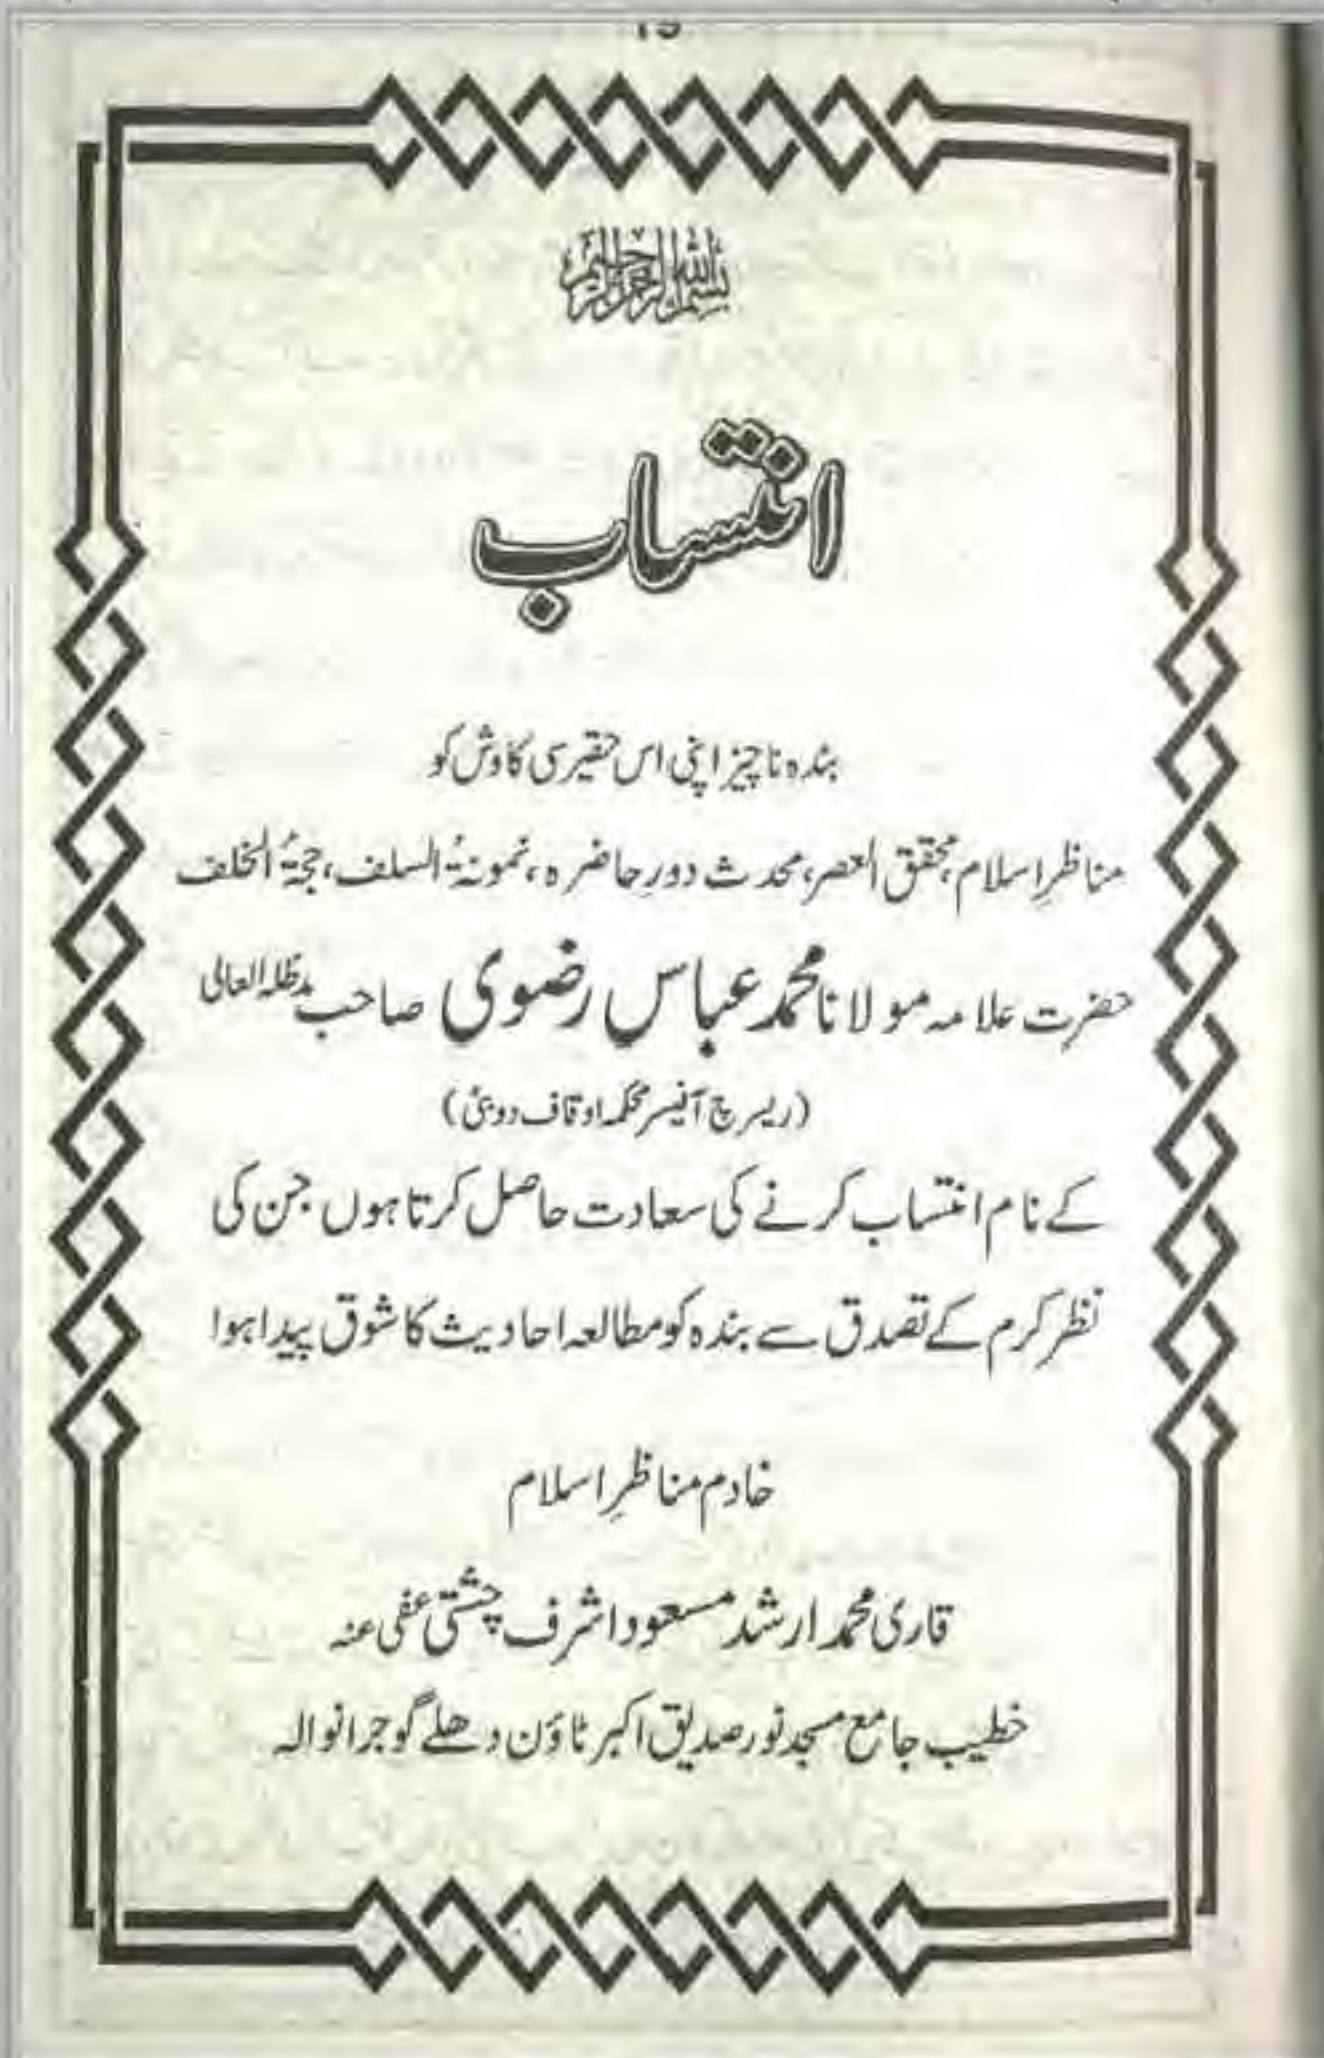 بسم الله الرحمن الرحيم
انتساب
بندہ ناچیز اپنی اس حقیر سی کاوش کو
مناظرِ اسلام، محقق العصر، محدث دورِ حاضرہ، نمونۂ السلف، حجۂ الخلف
حضرت علامہ مولانا محمد عباس رضوی صاحب مدظلہ العالی
(ریسرچ آفیسر محکمہ اوقاف دوبئی)
کے نام انتساب کرنے کی سعادت حاصل کرتا ہوں جن کی
نظر کرم کے تصدق سے بندہ کو مطالعہ احادیث کا شوق پیدا ہوا
خادم مناظرِ اسلام
قاری محمد ارشد مسعود اشرف چشتی عفی عنہ
خطیب جامع مسجد نور صدیق اکبر ٹاؤن دھلے گوجرانوالہ